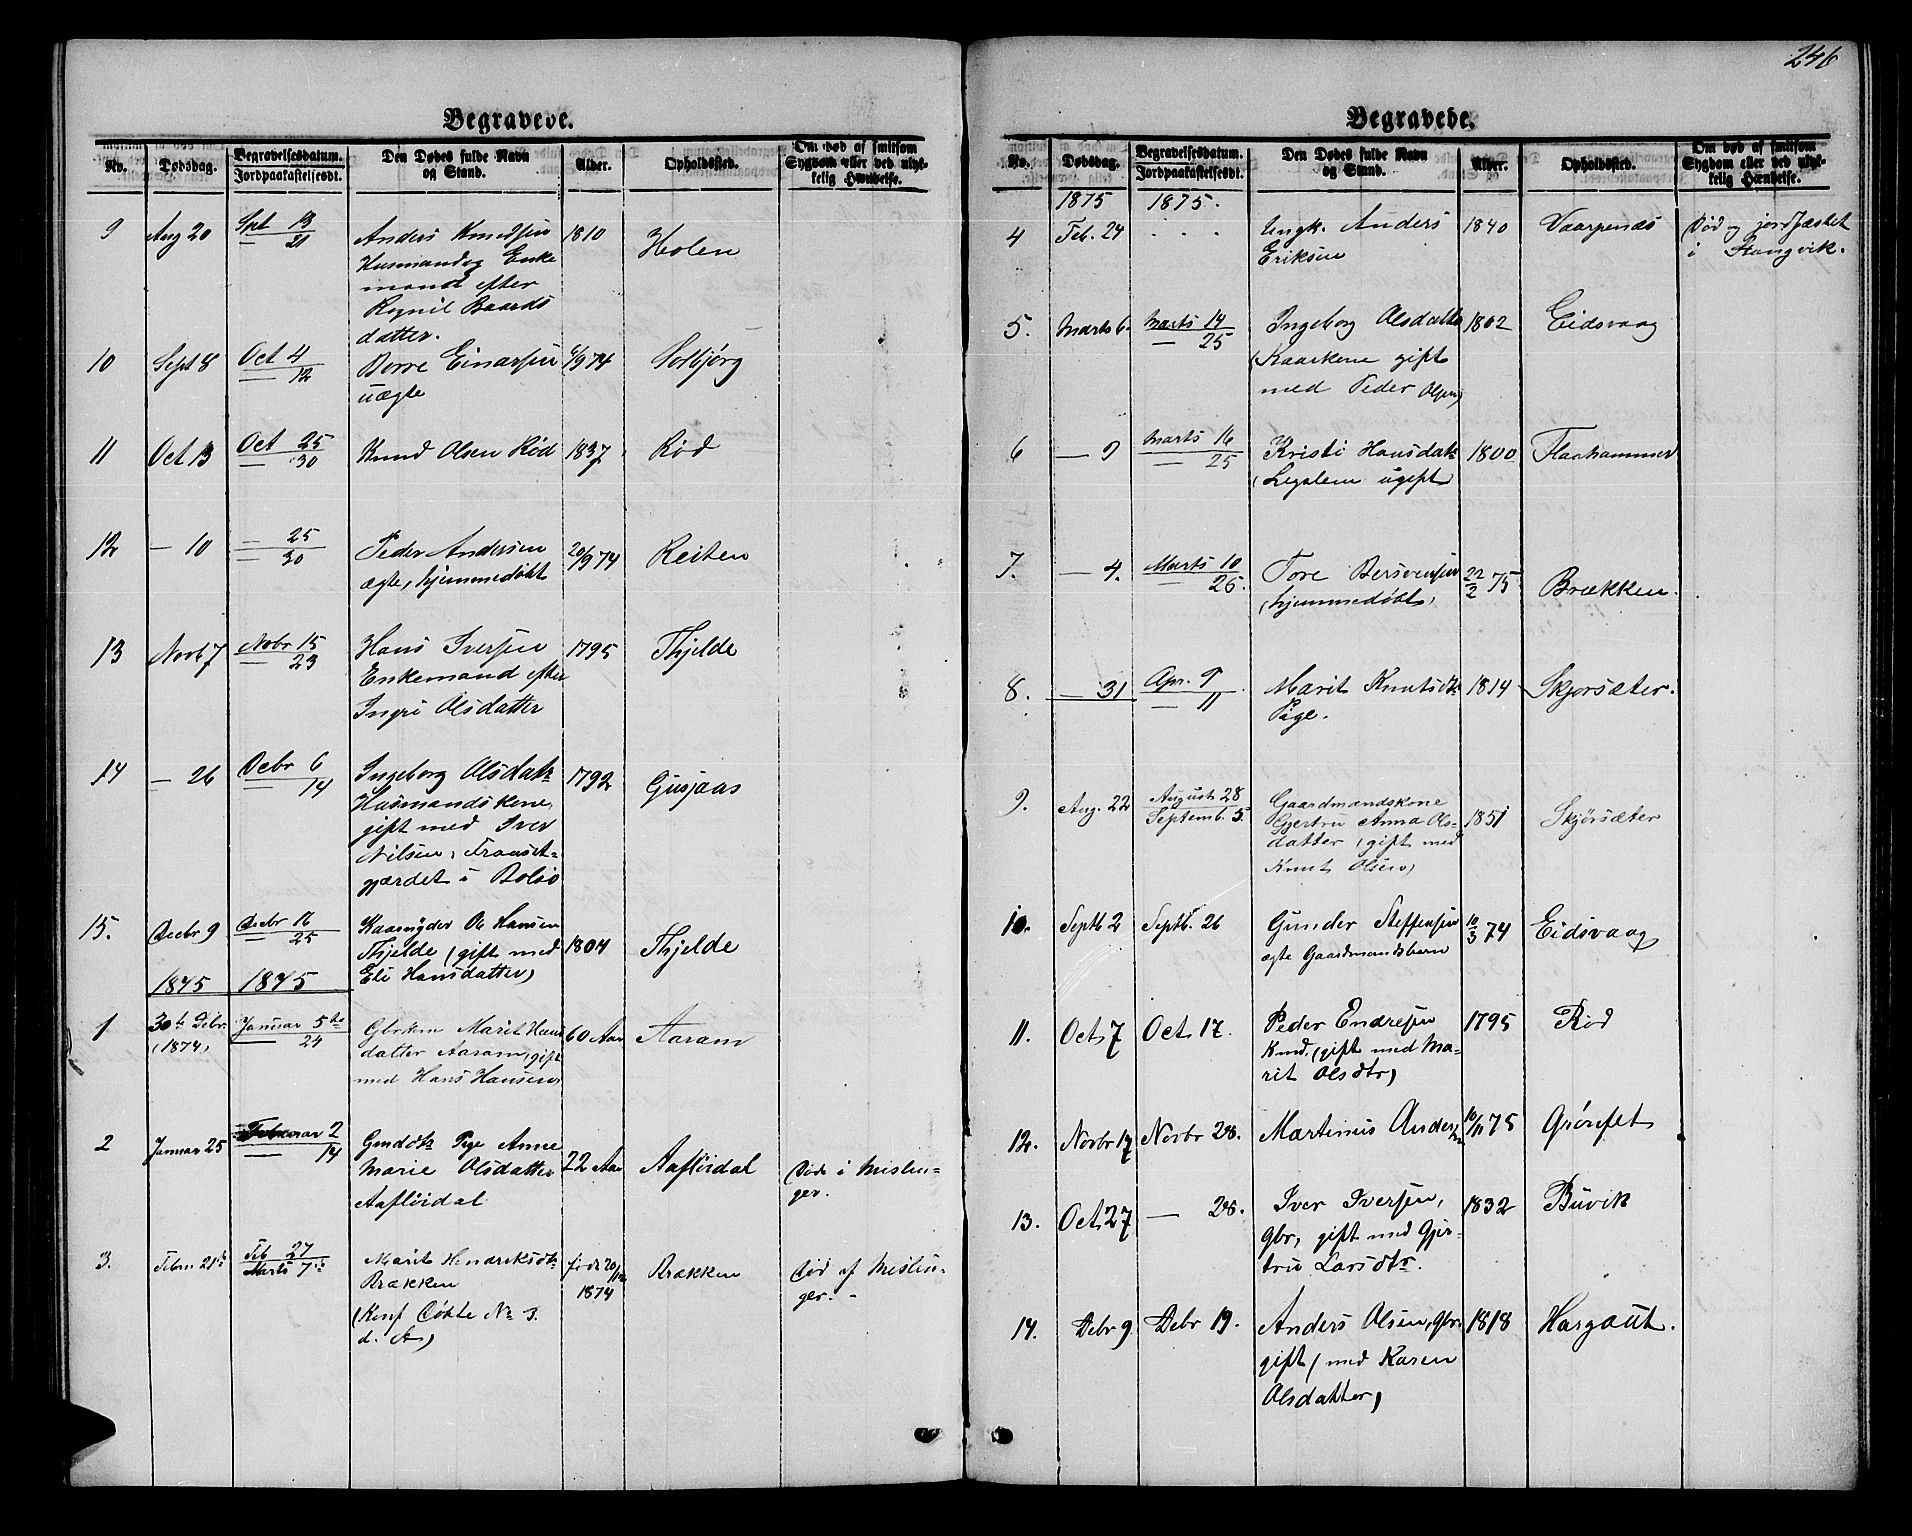 246
Begravede.
No.
Dødsdag.
Begravelsesdatum.
Jordpaakastelsesdt.
Den Dødes fulde Navn
og Stand.
Alder.
Opholdssted.
Om død af smitsom
Sygdom eller ved ulyk-
kelig Hændelse.
9 Aug 20 Spt 13 Anders Knudsen 1810 Holen
— 21 Husmand og Enke
mand efter
Ragnil Baards
datter.
10 Sept 8 Oct 4 Børre Einarsen 6/9 74 Solbjørg
— 12 uægte
11 Oct 13 Oct 25 Knud Olsen Rød 1837 Rød
— 30
12 — 10 — 25 Peder Andersen 20/9 74 Reiten
30 ægte, hjemmedøbt
13 Novb 7 Novbr 15 Hans Iversen 1795 Thjelde
— 23 Enkemand efter
Ingri Olsdatter
14 — 26 Decbr 6 Ingeborg Olsdatt 1792 Gusjaas
— 14 Husmandskone,
gift med Iver
Nilsen,
gjærdet i Bolsø
15. Decbr 9 Decbr 16 Ole Hansen 1804 Thjelde
— 25 Thjelde (gift med
Eli Hansdatter)
1875 1875
1 30te Debr. Januar 5te Marit Hans 60 Aar Aaram
(1874) — 24 datter Aaram, gift
med Hans Hansen
2 Januar 25 Februar 2 Pige Anne 22 Aar Aafløidal Død i Meslin-
— 14 Marie Olsdatter ger.
Aafløidal
3. Febru 21de Feb 27 Marit Hendriksdt. født 20/12 Brækken Død af Meslin-
Marts 7de Brækken 1874 ger.
(Konf Døbte No 3.
d. A)
Begravede.
No.
Dødsdag.
Begravelsesdatum.
Jordpaakastelsesdt.
Den Dødes fulde Navn
og Stand.
Alder.
Opholdssted.
Om død af smitsom
Sygdom eller ved ulyk-
kelig Hændelse.
1875 1875.
4 Feb. 24 . . . Ungk. Anders 1840 Vaarpenæs Død og jordfæstet
Eriksen i Stangvik.
5. Marts 6. Marts 14 Ingeborg Olsdatter 1802 Eidsvaag
— 25 (Kaarkone gift
med Peder Olsen)
6 — 9 Marts 16 Kristi Hansdatt 1800 Flaahammer
— 25 (Legslem ugift
7. — 4. Marts 10 Tore Bersvensen 22/2 75 Brækken.
— 26. (hjemmedøbt)
8. — 31 Apr. 9 Marit Knutsdt. 1814 Skjorsæter.
— 11 Pige.
9. Aug. 22 August 28 Gaardmandskone 1851 Skjørsæter
Septemb. 5. Gjertru Anna Ols-
datter (gift med
Knut Olsen)
10. Septb 2 Septb. 26 Gunder Steffensen 10/3 74 Eidsvaag
ægte Gaardmandsbarn
11. Oct 7 Oct 17. Peder Endresen 1795 Rød
Kmd. (gift med Ma-
rit Olsdtr)
12. Novbr 17 Novbr 28. Martinus Anders 10/11 75 Grønset
13. Oct 27 — 28. Iver Iversen, 1832 Buvik
Gbr, gift med Gjer-
tru Larsdtr.
14. Debr 9. Debr 19. Anders Olsen, Gbr. 1818 Hargaut.
gift (med Karen
Olsdatter)